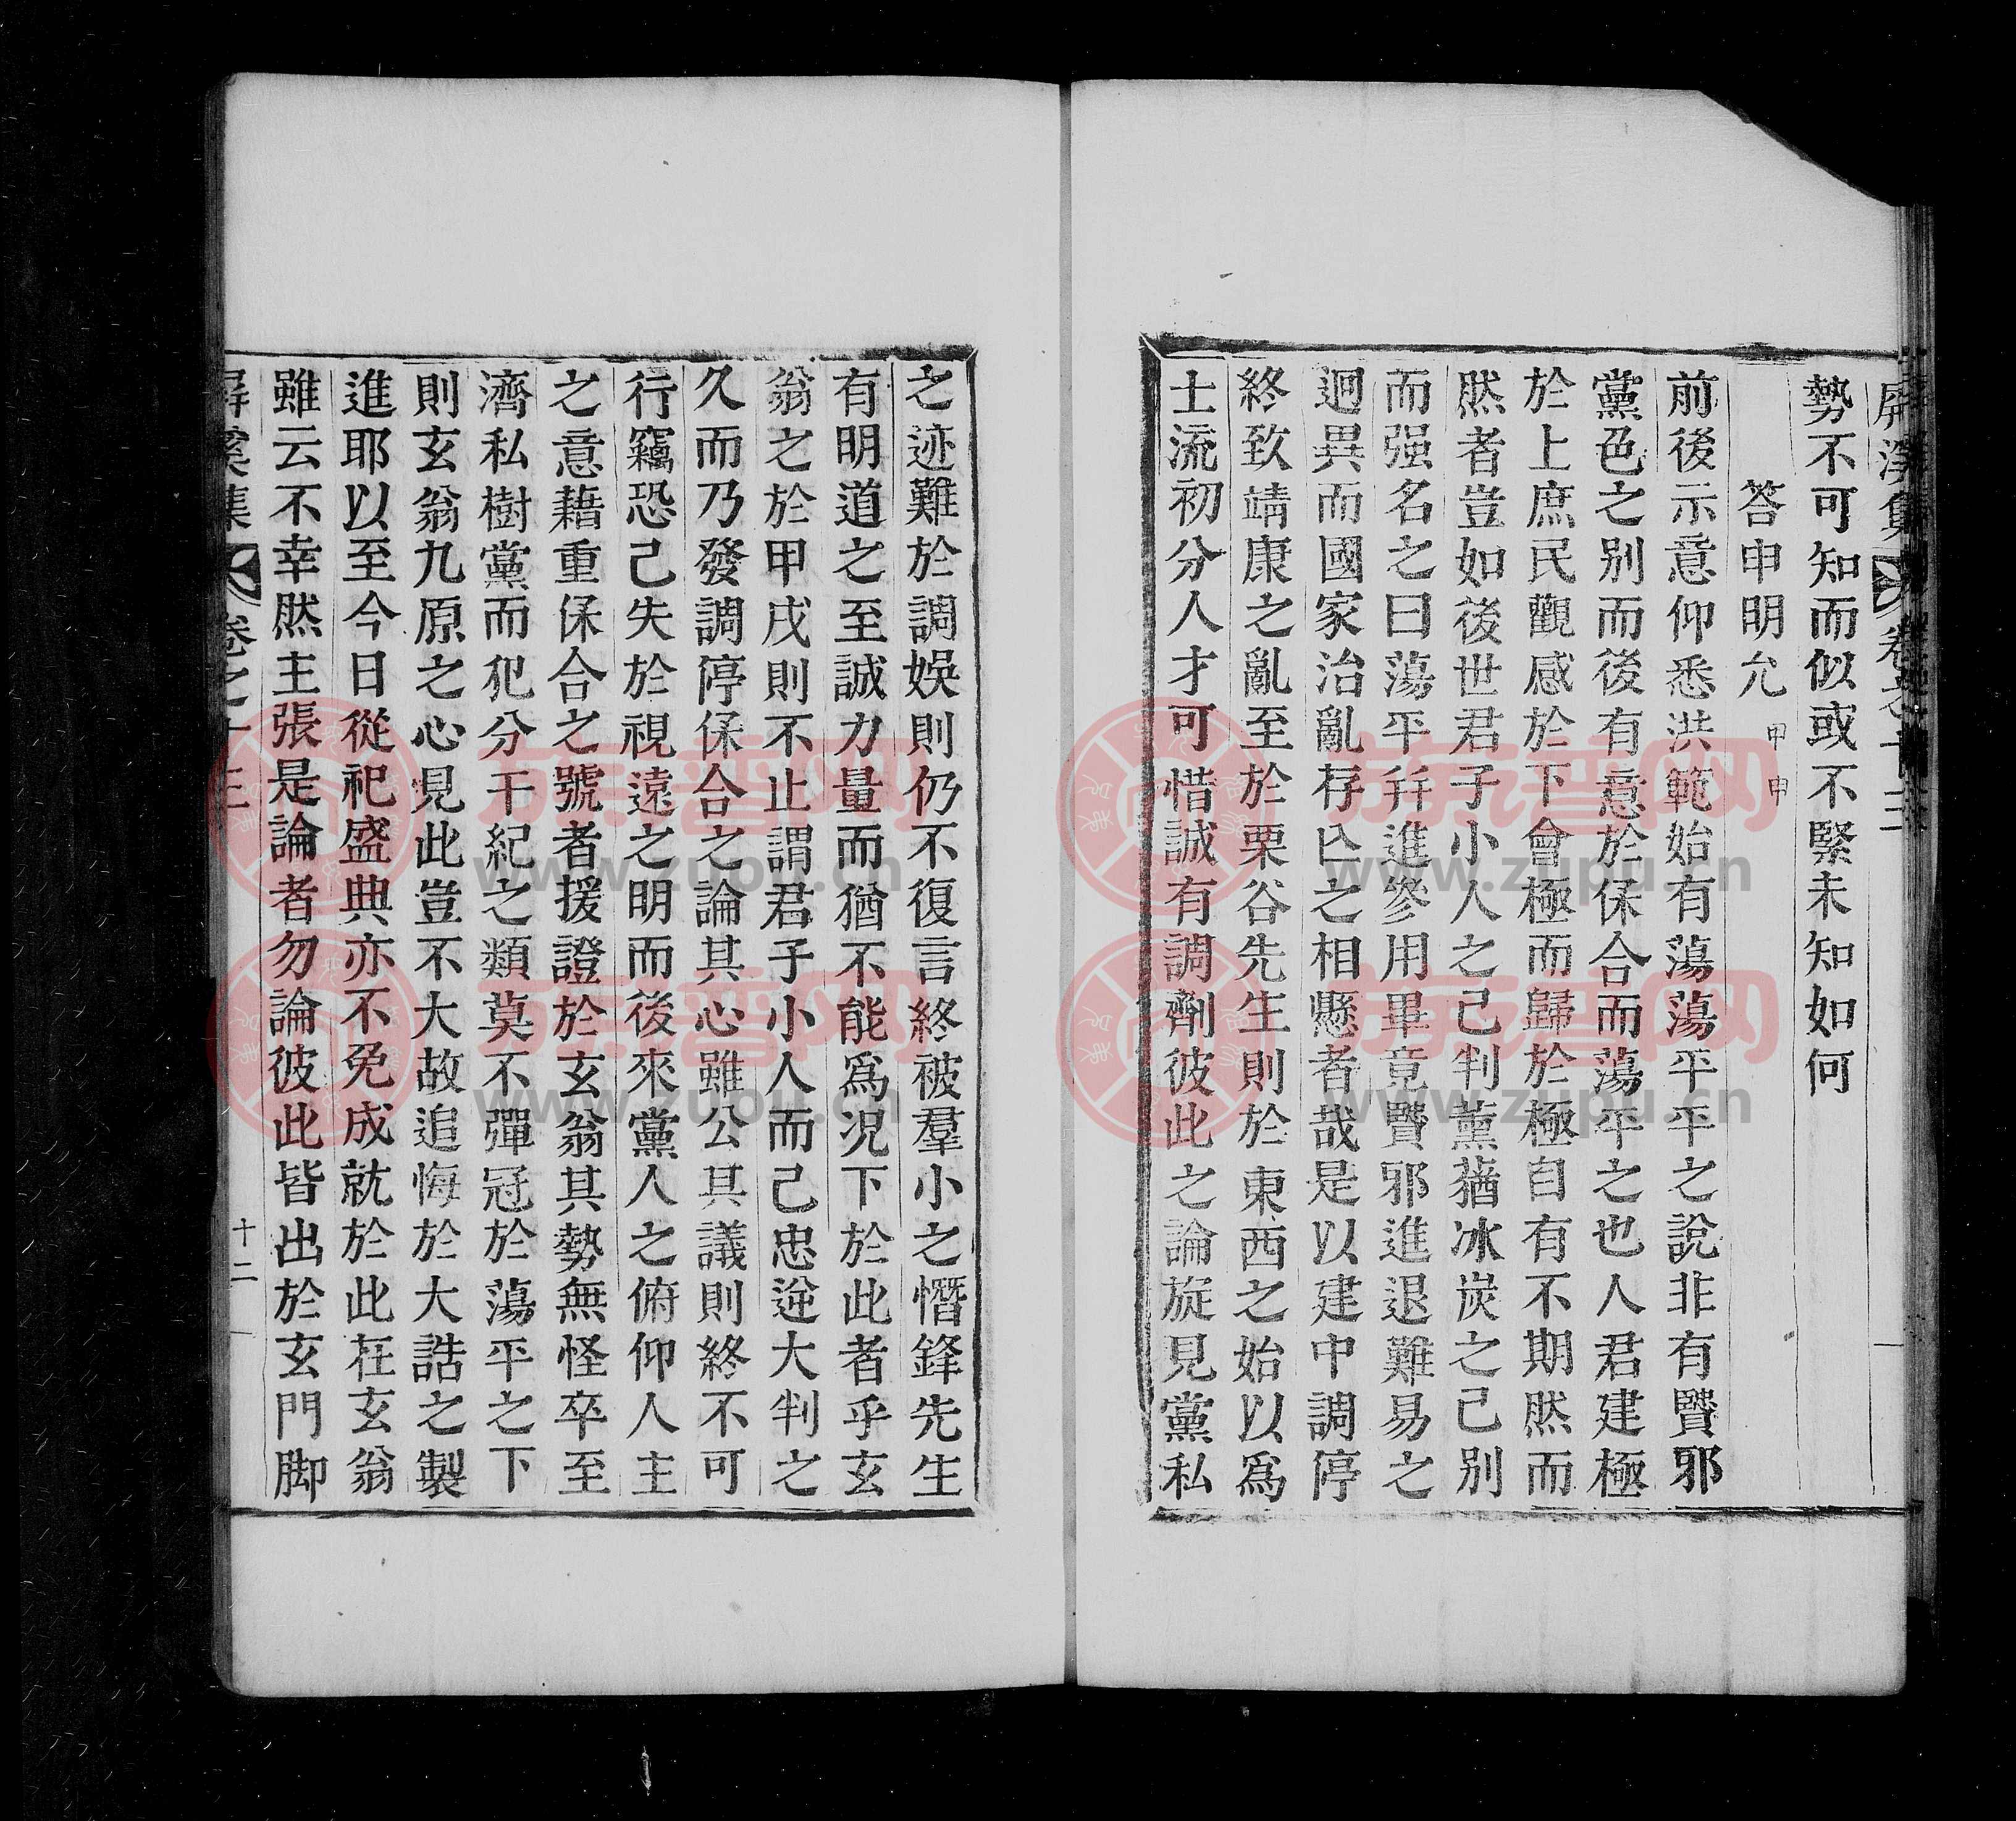 屏溪集 卷之十三
勢不可知而似或不緊未知如何
答申明允 甲申
前後示意仰悉洪範始有蕩蕩平平之說非有賢邪
黨色之別而後有意於保合而蕩平之也人君建極
於上庶民觀感於下會極而歸於極自有不期然而
然者豈如後世君子小人之已判薰蕕冰炭之已別
而强名之曰蕩平幷進參用畢竟賢邪進退難易之
迥異而國家治亂存亡之相懸者哉是以建中調停
終致靖康之亂至於栗谷先生則於東西之始以爲
士流初分人才可惜誠有調劑彼此之論旋見黨私
之迹難於調娛則仍不復言終被羣小之憯鋒先生
有明道之至誠力量而猶不能爲况下於此者乎玄
翁之於甲戌則不止謂君子小人而已忠逆大判之
久而乃發調停保合之論其心雖公其議則終不可
行竊恐已失於視遠之明而後來黨人之俯仰人主
之意藉重保合之號者援證於玄翁其勢無怪卒至
濟私樹黨而犯分干紀之類莫不彈冠於蕩平之下
則玄翁九原之心見此豈不大故追悔於大誥之製
進耶以至今日從祀盛典亦不免成就於此在玄翁
雖云不幸然主張是論者勿論彼此皆出於玄門脚
屏溪集 卷之十三 十二
族譜网
www.zupu.cn
族譜网
www.zupu.cn
族譜网
www.zupu.cn
族譜网
www.zupu.cn